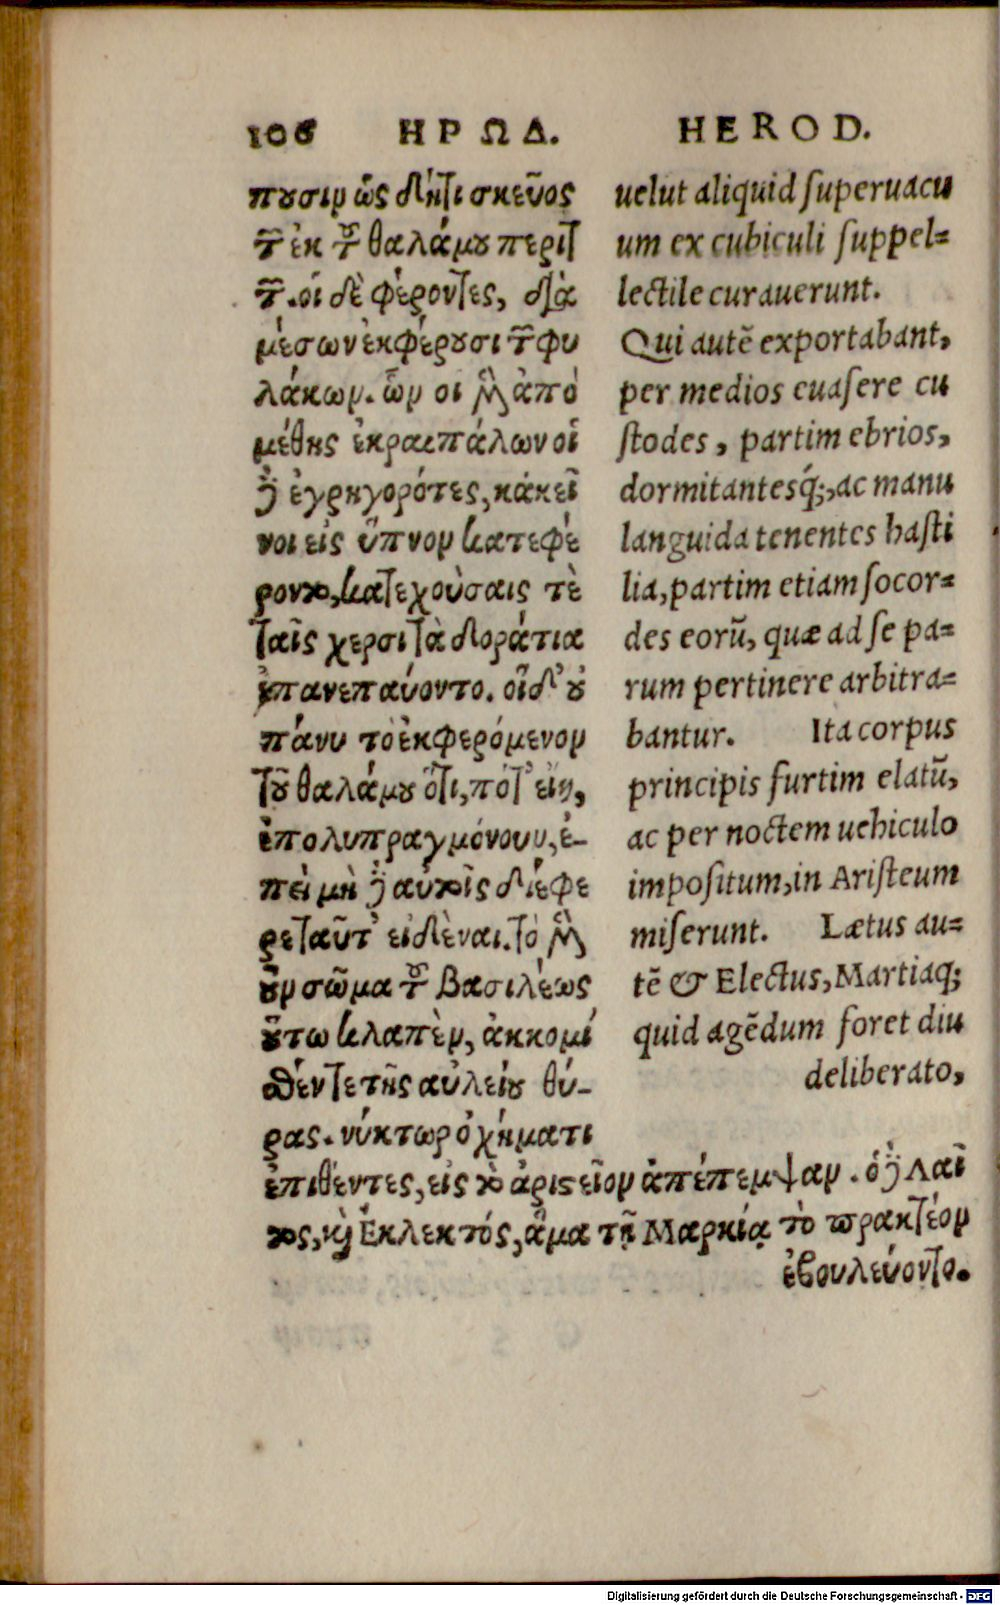 106 ΗΡΩΔ. HEROD.
πουσιν ὥς δή τι σκεῦος
τῶν ἐκ τοῦ θαλάμου περιτ
τῶν. οἱ δὲ φέροντες, διὰ
μέσων ἐκφέρουσι τῶν φυ
λάκων. ὧν οἱ μὲν ἀπὸ
μέθης ἐκραιπάλων οἱ
δὲ ἐγρηγορότες, κἀκεῖ
νοι εἰς ὕπνον κατεφέ
ροντο, κατεχούσαις τὲ
ταῖς χερσὶ τὰ δοράτια
ἐπανεπαύοντο. οἱ δ' οὐ
πάνυ τὸ ἐκφερόμενον
τοῦ θαλάμου ὅτι, πότ' εἴη,
ἐπολυπραγμόνουν, ἐ-
πεὶ μὴ δὲ αὐτοῖς διέφε
ρε ταῦτ' εἰδέναι. τὸ μὲν
οὖν σῶμα τοῦ βασιλέως
οὕτω κλαπὲν, ἀκκομί
σθέν τε τῆς αὐλείου θύ-
ρας. νύκτωρ ὀχήματι
ἐπιθέντες, εἰς τὸ ἀριστεῖον ἀπέπεμψαν. ὁ δὲ Λαῖ
τος, καὶ Ἐκλεκτός, ἅμα τῇ Μαρκίᾳ τὸ πρακτέον
ἐβουλεύοντο.
uelut aliquid superuacu
um ex cubiculi suppel=
lectile curauerunt.
Qui autē exportabant,
per medios euasere cu
stodes, partim ebrios,
dormitantesq́;, ac manu
languida tenentes hasti
lia, partim etiam socor=
des eorũ, quæ ad se pa=
rum pertinere arbitra=
bantur. Ita corpus
principis furtim elatũ,
ac per noctem uehiculo
impositum, in Aristeum
miserunt. Lætus au=
tē & Electus, Martiaq;
quid agēdum foret diu
deliberato,
Digitalisierung gefördert durch die Deutsche Forschungsgemeinschaft - DFG